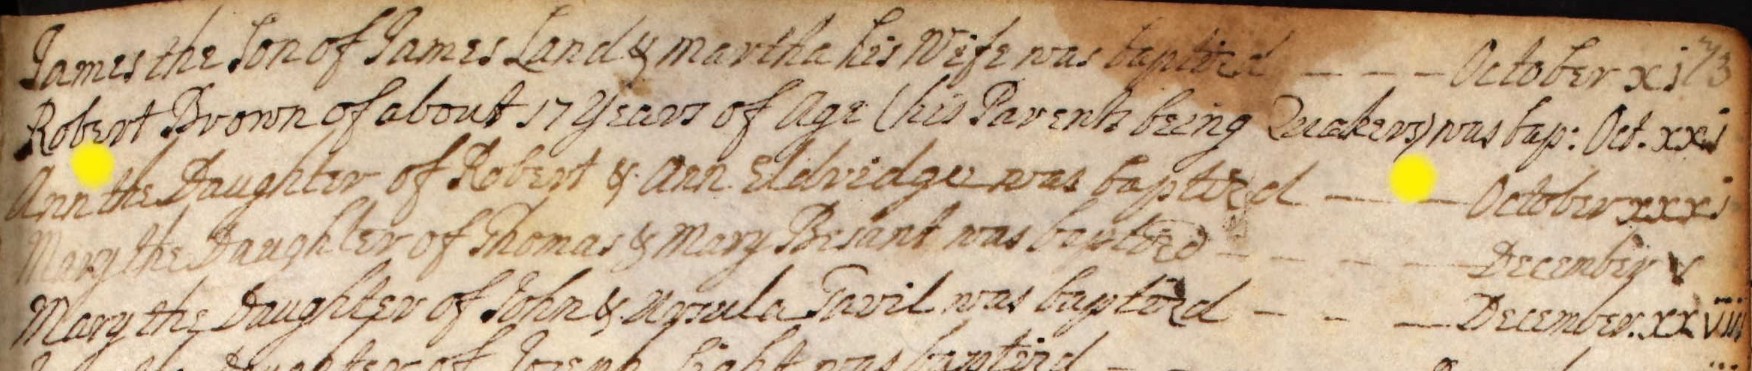 James the Son of James Land & Martha his Wife was baptized — — — October xi 73
Robert Brown of about 17 Years of Age (his Parents being Quakers) was bap: Oct. xxi
Ann the Daughter of Robert & Ann Eldridge was baptized — — October xxxi
Mary the Daughter of Thomas & Mary Besant was baptized — — — — December v
Mary the Daughter of John & Ursula Tavil was baptized — — — December. xxviii
Daughter of Joseph Light was baptized —